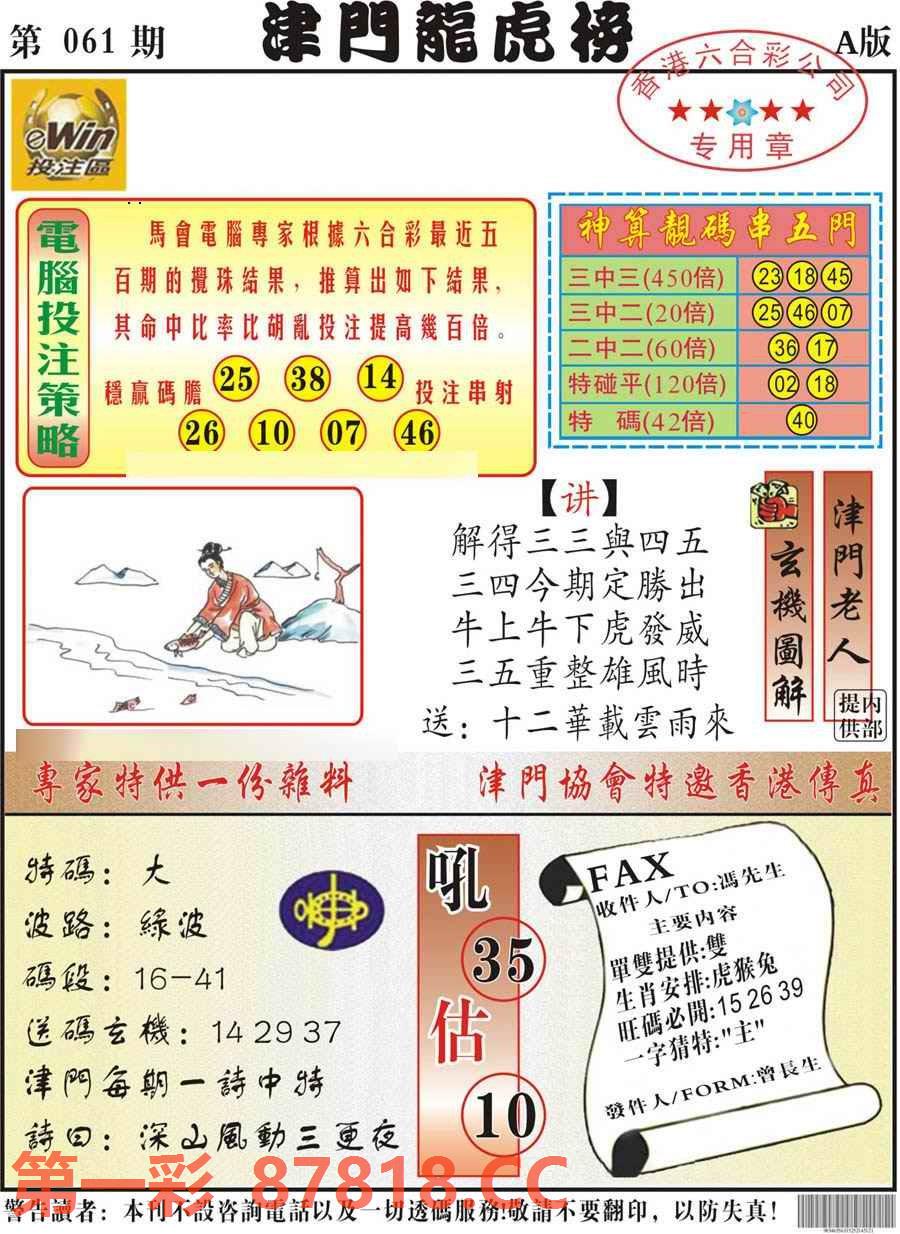 第 061 期
津門龍虎榜
A版
香港六合彩公司
专用章
eWin
投注區
電腦投注策略
馬會電腦專家根據六合彩最近五
百期的攪珠結果，推算出如下結果，
其命中比率比胡亂投注提高幾百倍。
穩贏碼膽 25 38 14 投注串射
26 10 07 46
神算靚碼串五門
三中三(450倍) 23 18 45
三中二(20倍) 25 46 07
二中二(60倍) 36 17
特碰平(120倍) 02 18
特 碼(42倍) 40
【讲】
解得三三與四五
三四今期定勝出
牛上牛下虎發威
三五重整雄風時
送：十二華載雲雨來
玄機圖解
津門老人
内部提供
專家特供一份雜料
津門協會特邀香港傳真
特碼：大
波路：綠波
碼段：16-41
送碼玄機：14 29 37
津門每期一詩中特
詩曰：深山風動三更夜
吼
35
估
10
FAX
收件人/TO:馮先生
主要内容
單雙提供:雙
生肖安排:虎猴兔
旺碼必開:15 26 39
一字猜特:"主"
發件人/FORM:曾長生
第一彩 87818.CC
警告讀者：本刊不設咨詢電話以及一切透碼服務!敬請不要翻印，以防失真！